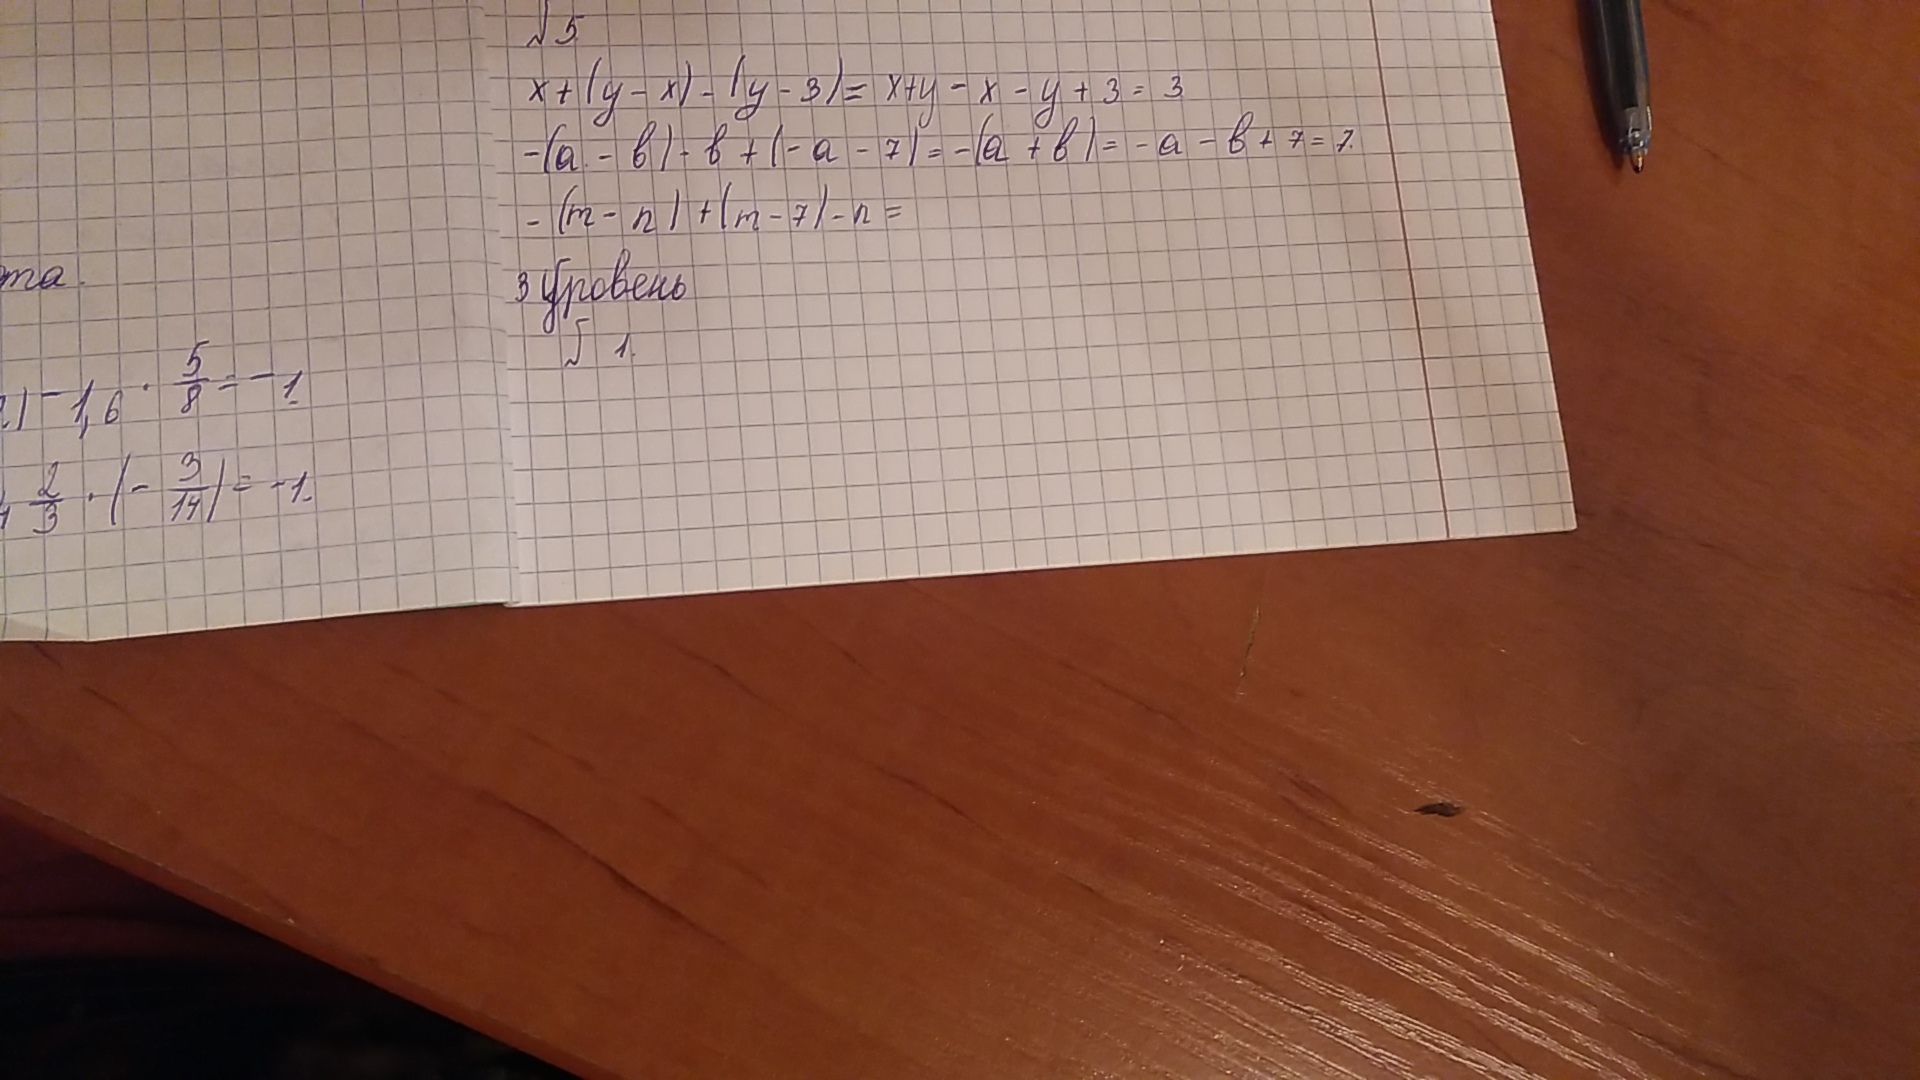 та.
) -1,6 · 5/8 = -1.
2/3 · (- 3/14) = -1.
№ 5
x + (y - x) - (y - 3) = x + y - x - y + 3 = 3
-(a - b) - b + (-a - 7) = -(a + b) = -a - b + 7 = 7.
-(m - n) + (m - 7) - n =
3 уровень
№ 1.